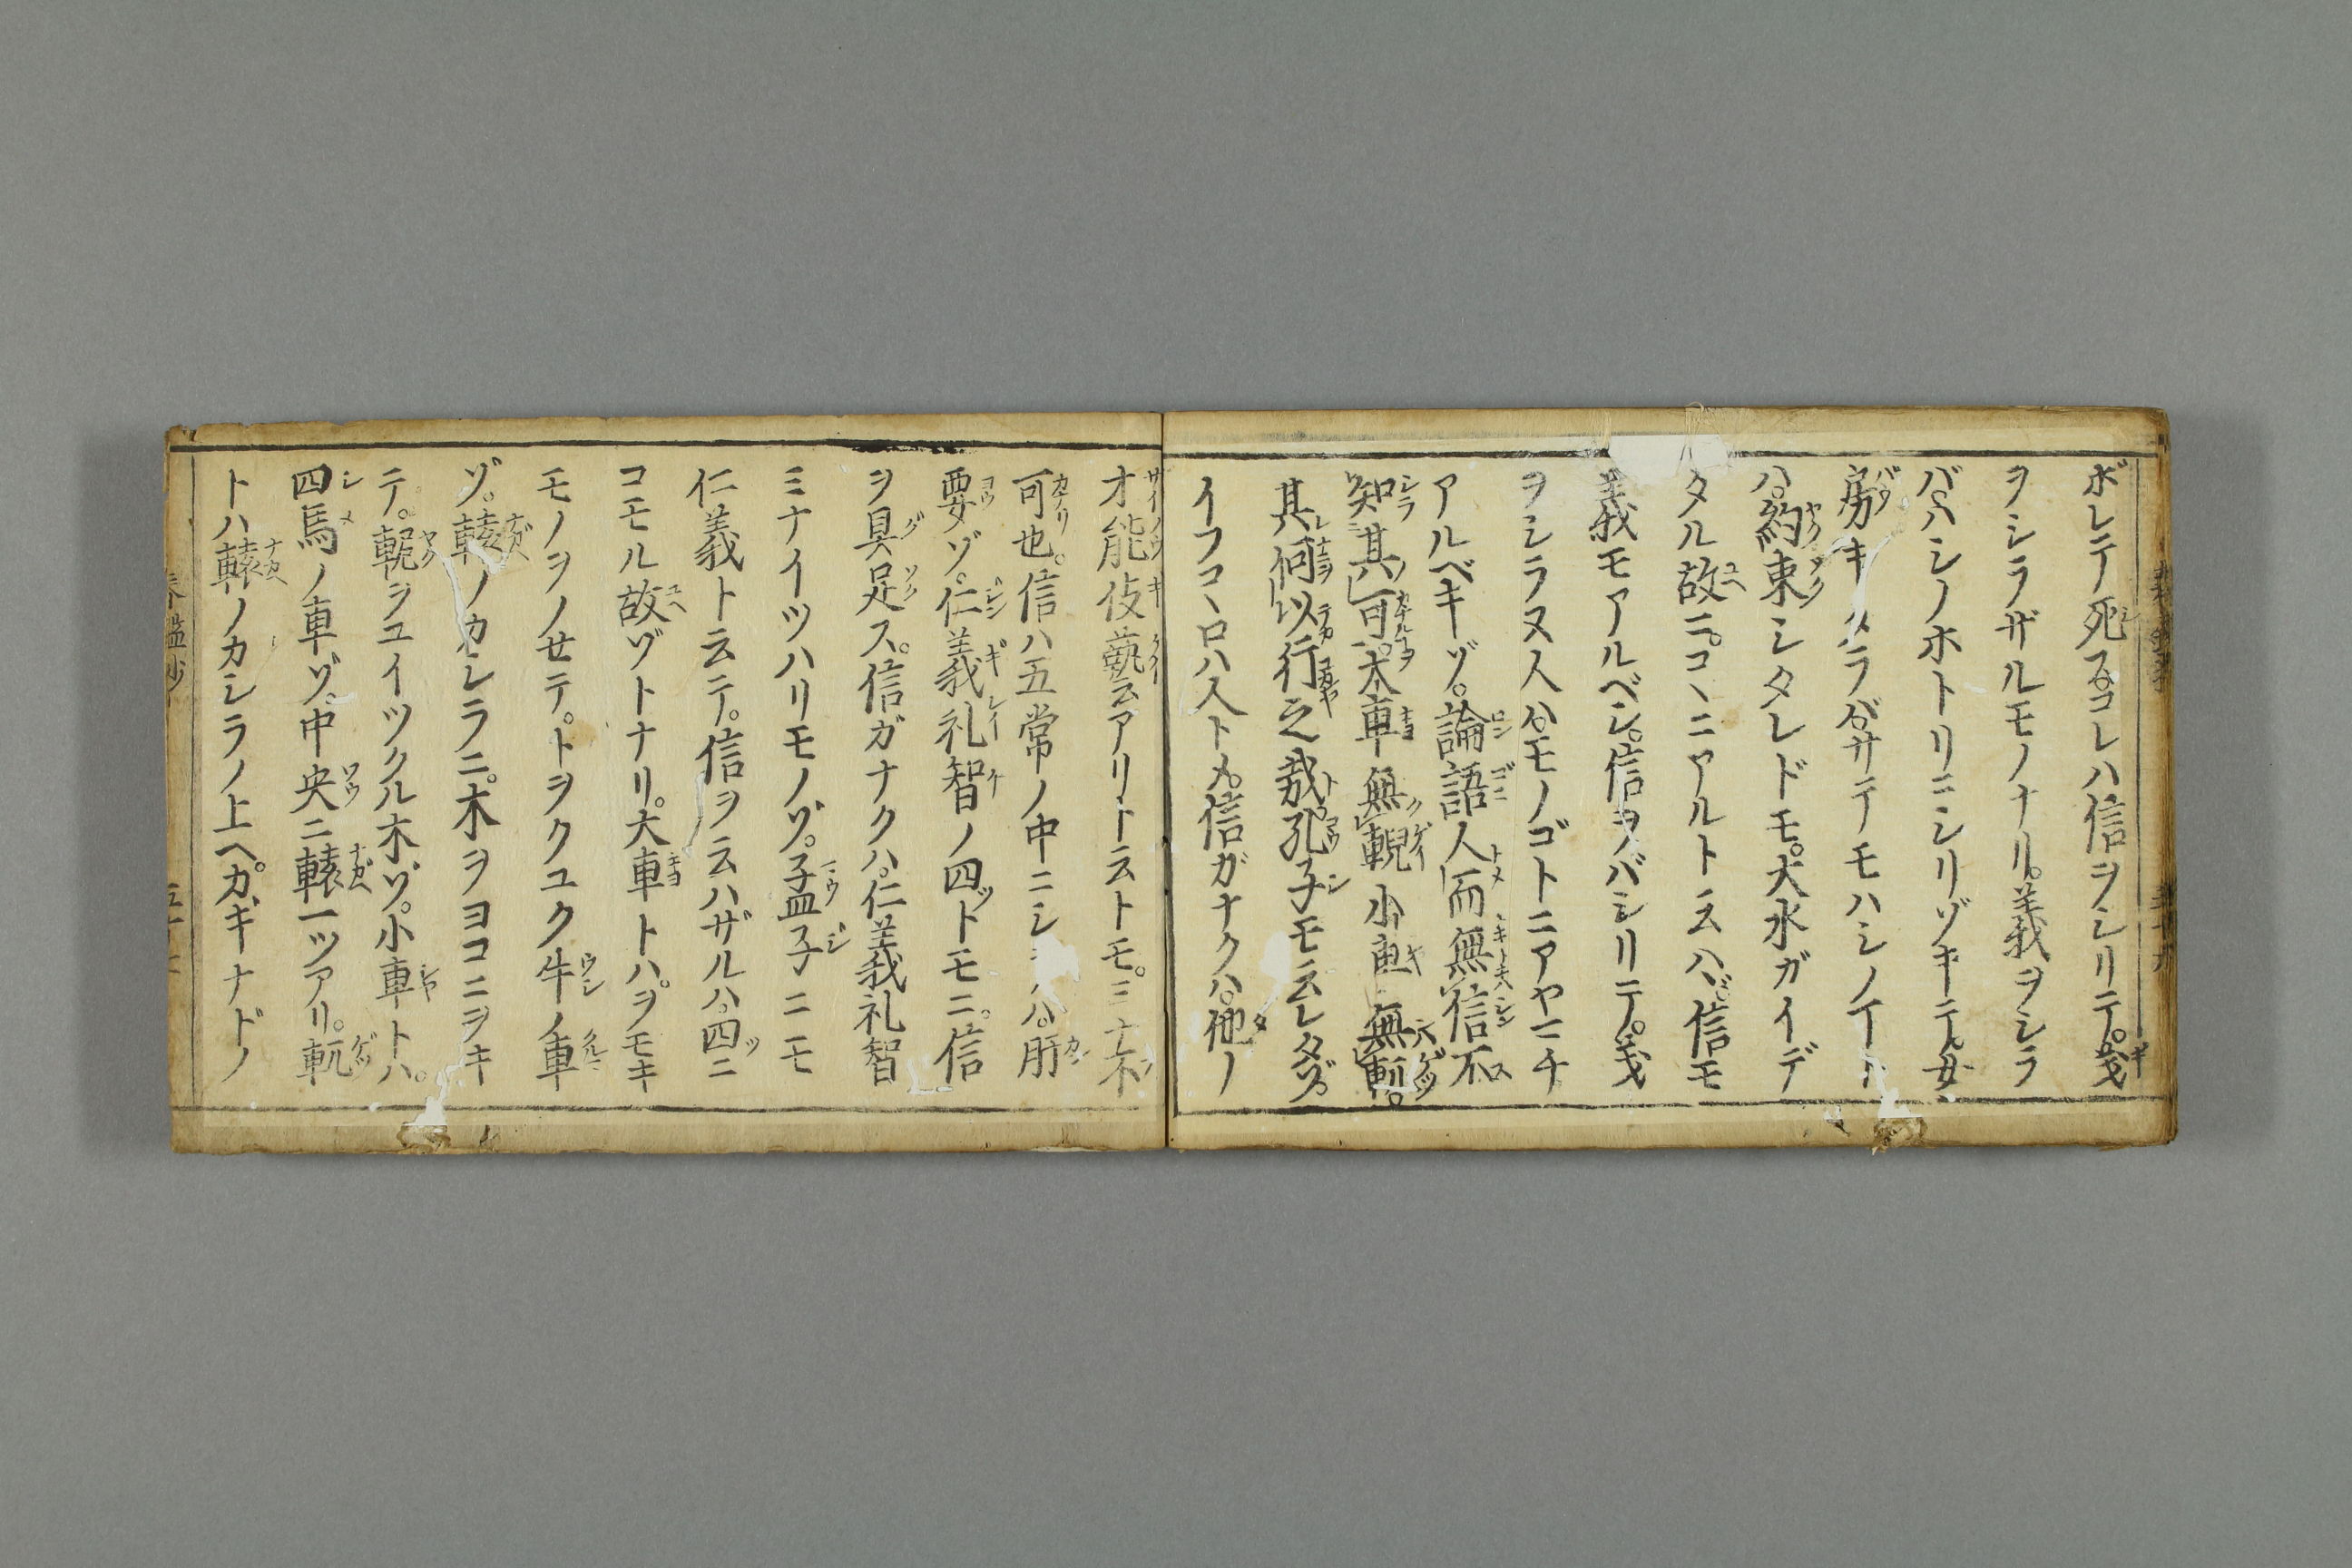 ボレテ死ス。コレハ信ヲシリテ。義
ヲシラザルモノナリ。義ヲシラ
バ。ハシノホトリニシリゾキテ。女
房キタラバ。サテモハシノイ
ハ。約束シタレドモ。大水ガイデ
タル故ニ。コヽニアルト云ハヾ。信モ
義モアルベシ。信ヲバシリテ。義
ヲシラヌ人ハ。モノゴトニアヤマチ
アルベキゾ。論語人而無信不
知其可。大車無輗小車無軏。
其何以行之哉ト。孔子モ云レタゾ。
イフコヽロハ人トメ。信ガナクハ。他ノ
才能伎藝云アリト云トモ。ミナ不
可也。信ハ五常ノ中ニシテハ。肝
要ゾ。仁義礼智ノ四ツトモニ。信
ヲ具足ス。信ガナクハ。仁義礼智
ミナイツハリモノゾ。孟子ニモ
仁義ト云テ。信ヲ云ハザルハ。四ツニ
コモル故ゾトナリ。大車トハ。ヲモキ
モノヲノセテ。トヲクユク牛ノ車
ゾ。轅ノカシラニ。木ヲヨコニヲキ
テ。軛ヲユイツクル木ゾ。小車トハ。
四馬ノ車ゾ。中央ニ轅一ツアリ。軏
トハ轅ノカシラノ上ヘ。カギナドノ